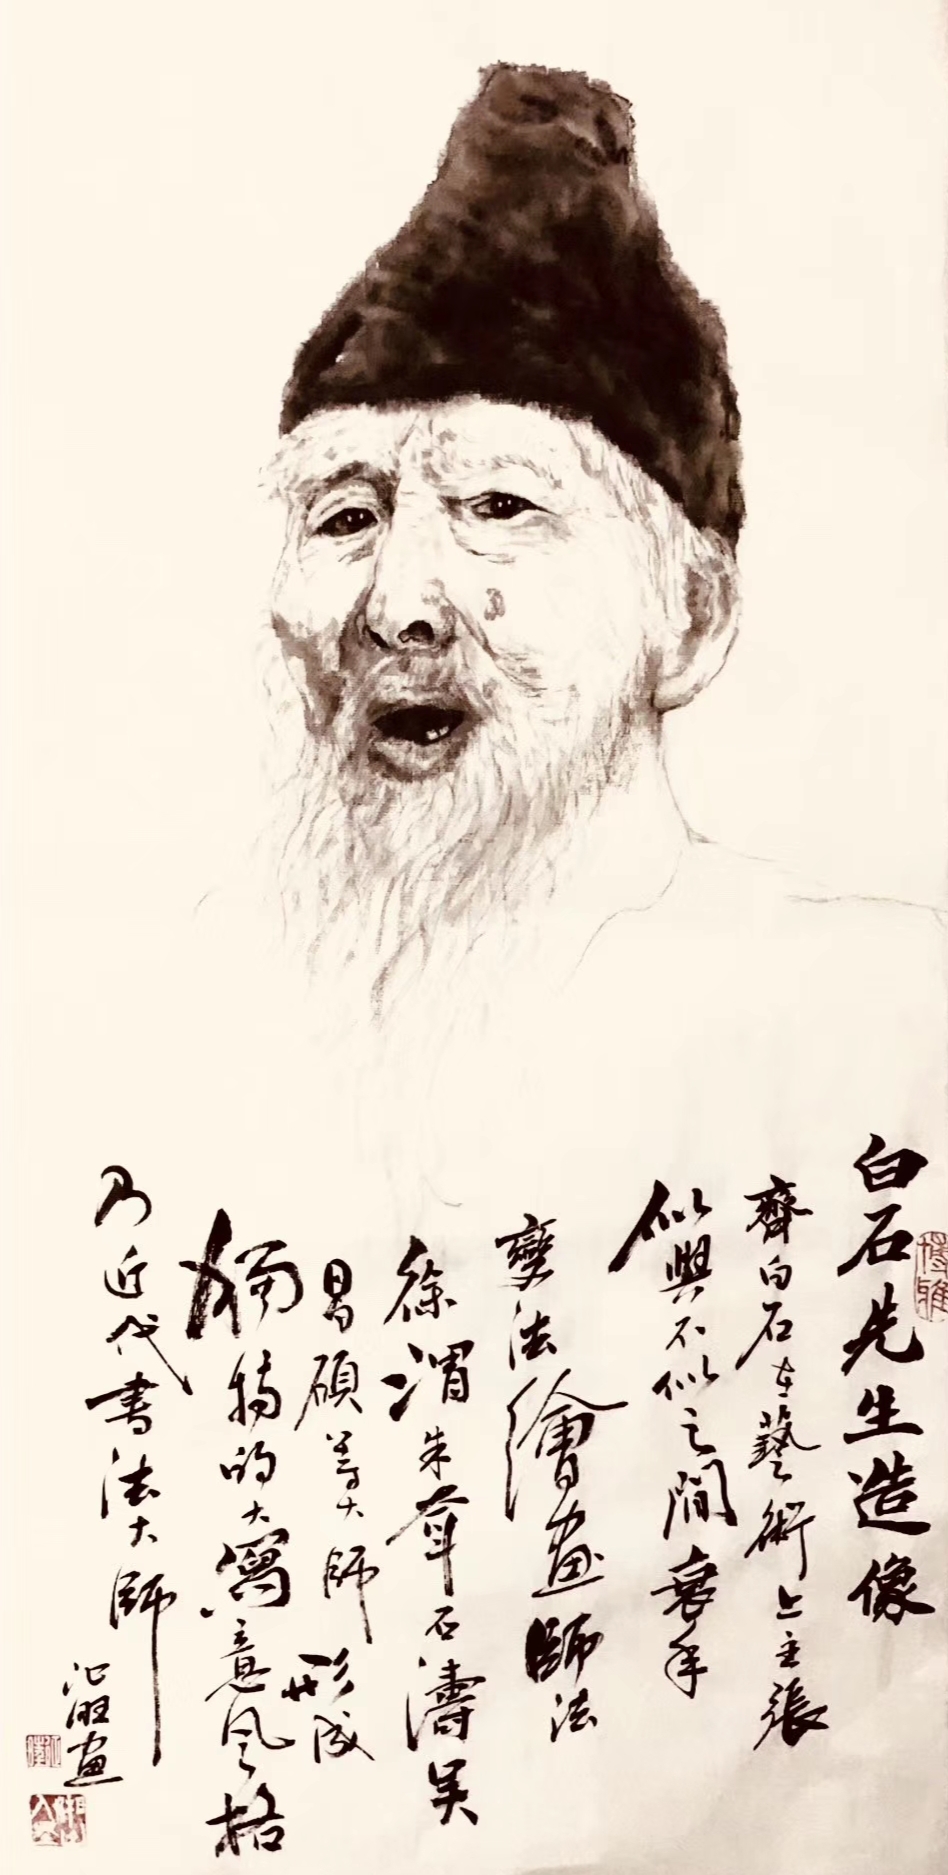 白石先生造像
齊白石在藝術上主張
似與不似之間衰年
變法繪畫師法
徐渭朱耷石濤吴
昌碩等大師形成
獨特的大寫意風格
乃近代書法大師
画
博雅